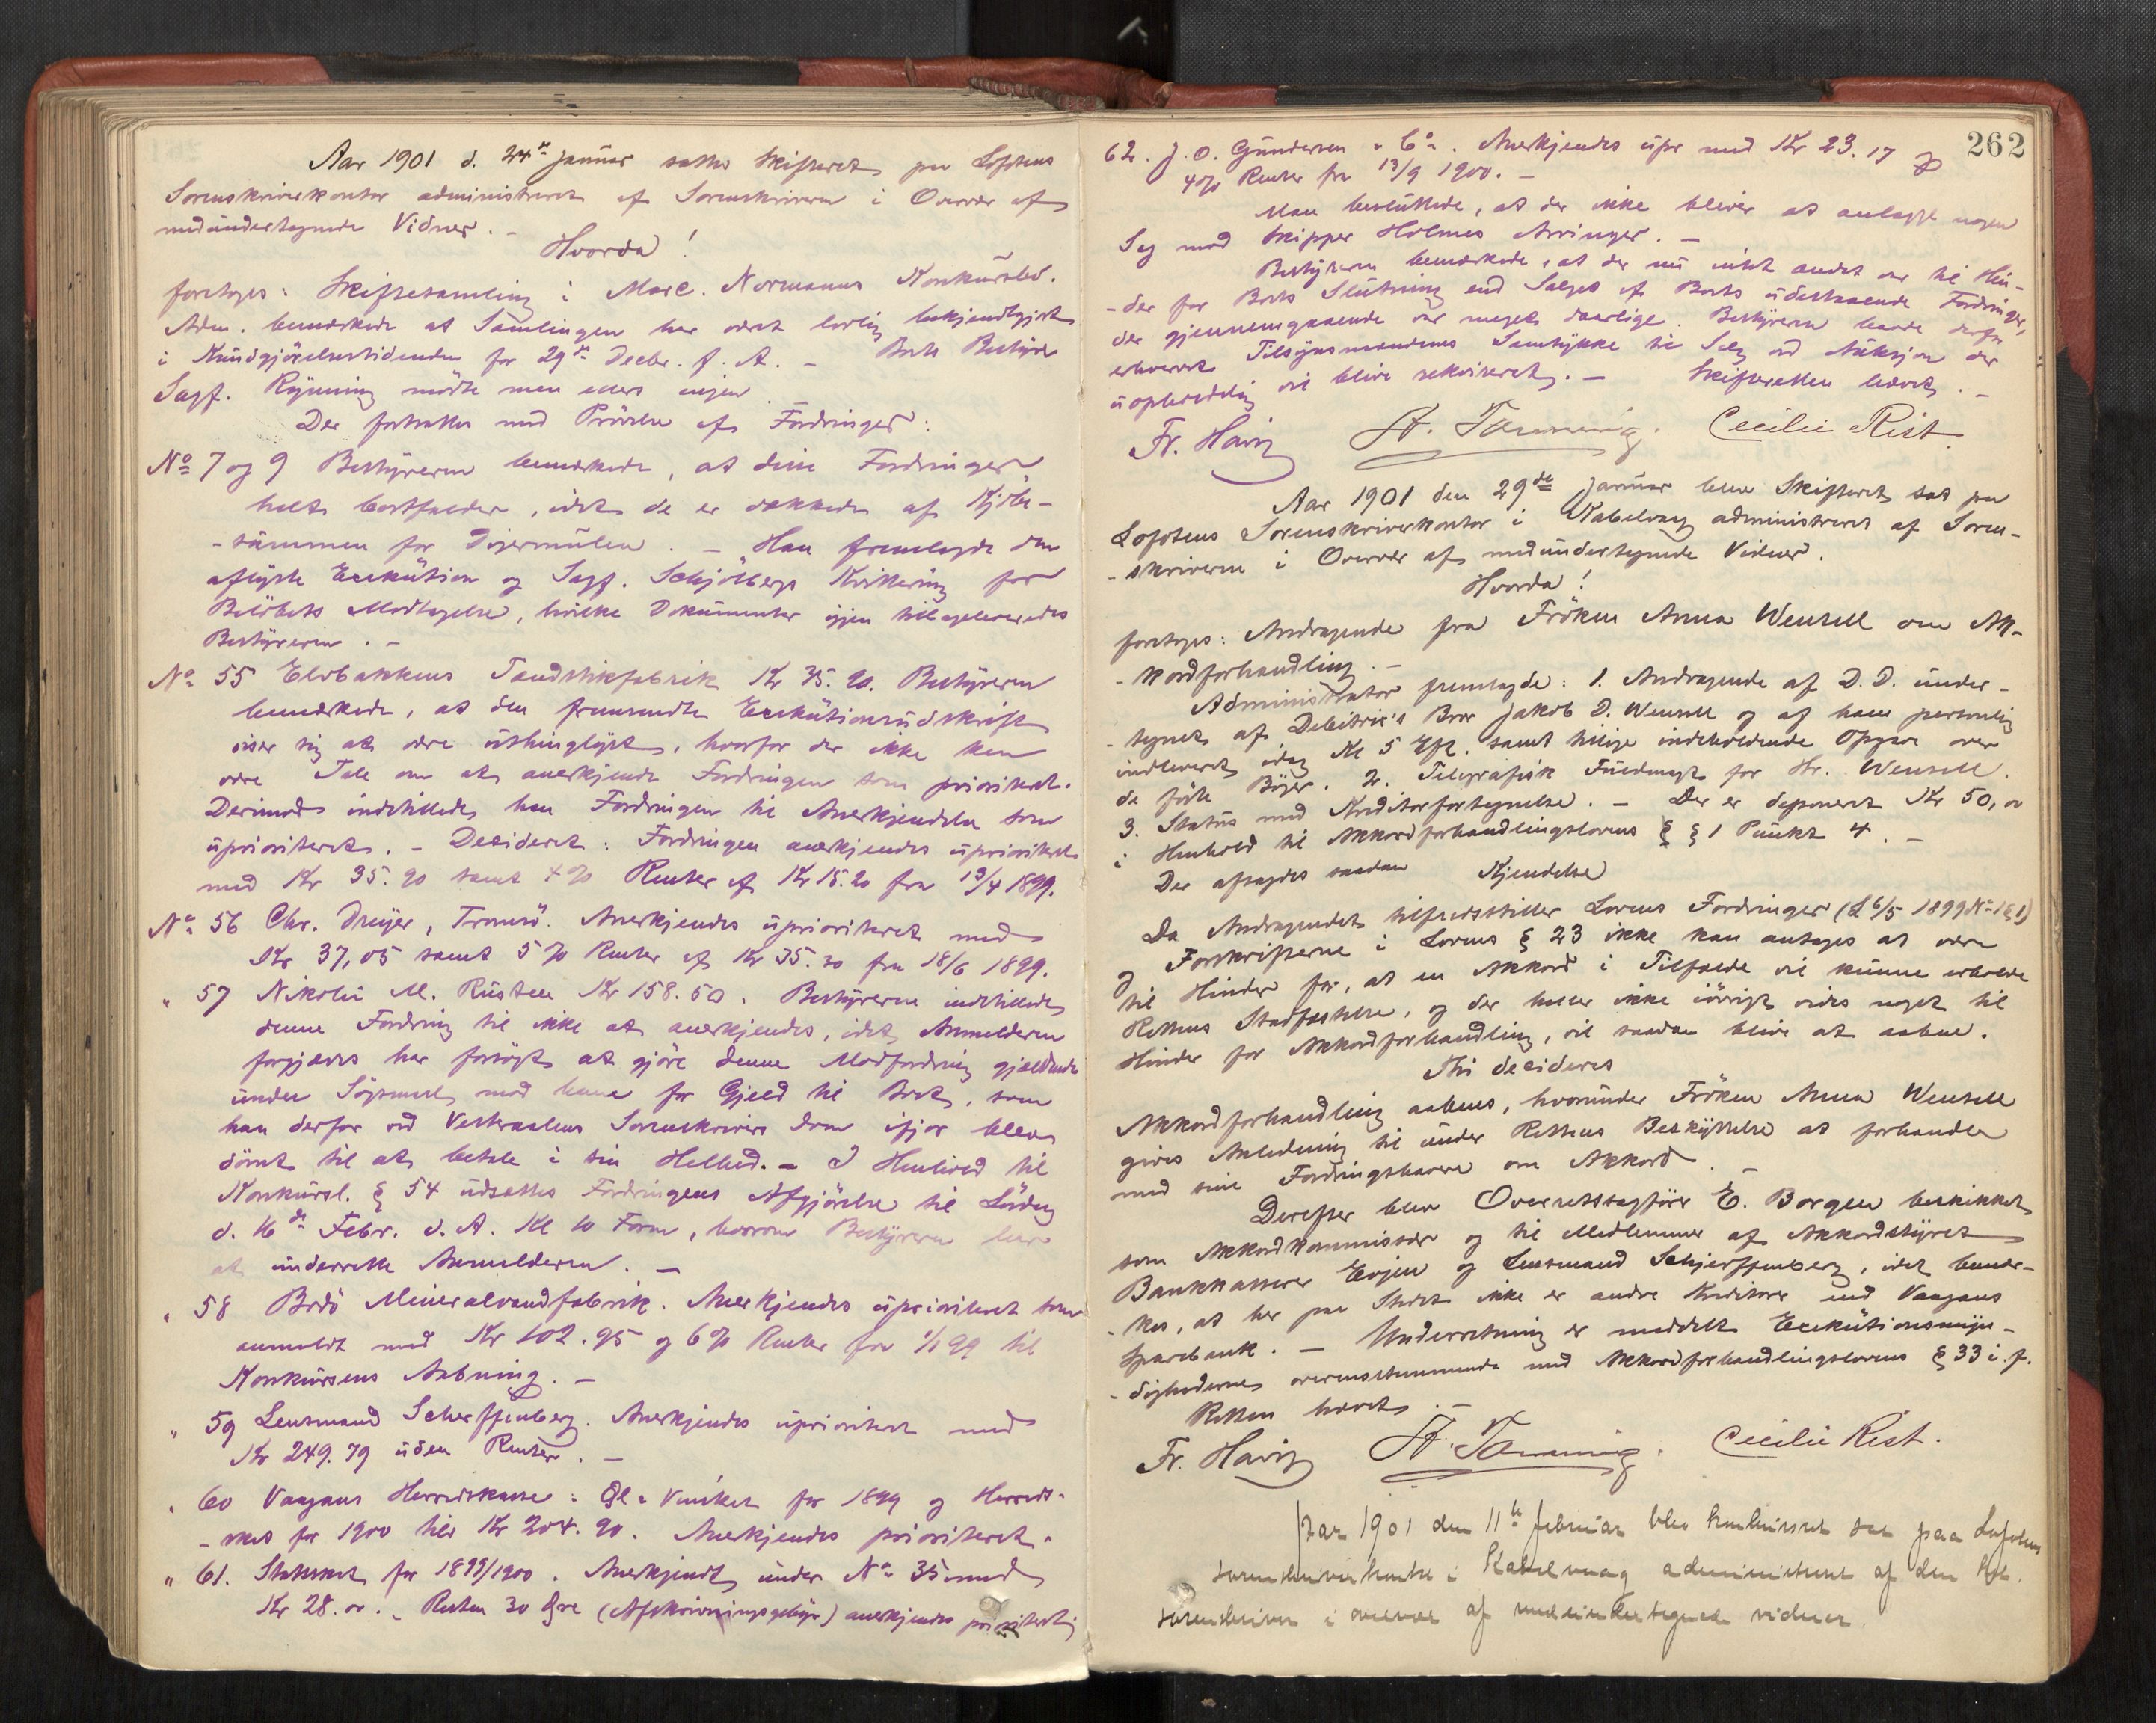 Aar 1901 d. 24de Januar sattes Skifteret paa Lofotens
Sorenskriverkontor administreret af Sorenskriveren i Overvær af
medundertegnede Vidner. –
Hvorda!
foretoges: Skiftesamling i Marc. Normanns Konkursbo.
Adm. bemærkede at Samlingen har været lovlig bekjendtgjort
i Kundgjörelsestidenden for 29de Decbr. f. A. – Boets Bestyrer
Sagf. Rynning mödte men ellers ingen.
Der fortsattes med Prövelse af Fordringer:
No 7 og 9 Bestyreren bemærkede, at disse Fordringer
helt bortfalder, idet de er dækkede af Kjöbe-
-summen for Digermulen. – Han fremlagde den
aflyste Exekution og Sagf. Schjölbergs Kvittering for
Belöbets Modtagelse, hvilke Dokumenter igjen tilbageleveredes
Bestyreren. –
No 55 Elvbakkens Tandstikfabrik Kr 35.90. Bestyreren
bemærkede, at den fremsendte Exekutionsudskrift
viser sig at være uthinglyst, hvorfor der ikke kan
være Tale om at anerkjende Fordringen som prioriteret.
Derimod indstillede han Fordringen til Anerkjendelse som
uprioriteret. – Decideret: Fordringen anerkjendes uprioriteret
med Kr 35.90 samt 4 % Renter af Kr 15.20 fra 13/4 1899.
No 56 Chr. Dreyer, Tromsö. Anerkjendes uprioriteret med
Kr 37,05 samt 5 % Renter af Kr 35.30 fra 18/6 1899.
" 57 Nikolai M. Rusten Kr 158.50. Bestyreren indstillede
denne Fordring til ikke at anerkjendes, idet Anmelderen
forgjæves har forsögt at gjöre denne Modfordring gjældende
under Sögsmaal mod ham for Gjæld til Boet, som
han derfor ved Vesteraalens Sorenskriveris Dom ifjor blev
dömt til at betale i sin Helhed. – I Henhold til
Konkursl. § 54 udsattes Fordringens Afgjörelse til Lördag
d. 16de Febr. d. A. Kl 10 Form, hvorom Bestyreren har
at underrette Anmelderen. –
" 58 Bodö Mineralvandfabrik. Anerkjendes uprioriteret som
anmeldt med Kr 102.95 og 6 % Renter fra 1/1 99 til
Konkursens Aabning. –
" 59 Lensmand Scherffenberg. Anerkjendes uprioriteret med
Kr 249.79 uden Renter. –
" 60 Vaagans Herredskasse: for 1899 og Herreds-
-skat for 1900 tils Kr 204.90. Anerkjendes prioriteret.
" 61. Statsskat for 1899/1900. Anerkjendt under No 35 med
Kr 28.00. – Resten 30 Öre (Afskrivningsgebyr) anerkjendes prioriteret
262
62. J. O. Gundersen & Co. Anerkjendes upr med Kr 23.17
4 % Renter fra 13/9 1900. –
Man besluttede, at der ikke bliver at anlægge nogen
Sag mod Skipper Holmes Arvinger. –
Bestyreren bemærkede, at der nu intet andet var til Hin-
-der for Boets Slutning end Salget af Boets udestaaende Fordringer,
der gjennemgaaende var meget daarlige. Bestyreren havde derfor
erhvervet Tilsynsmændenes Samtykke til Salg ved Auksjon der
uopholdelig vil blive rekvireret. – Skifteretten hævet. –
Fr. Hariz A. Tønning. Cecilie Rist
Aar 1901 den 29de Januar blev Skifteret sat paa
Lofotens Sorenskriverkontor i Kabelvaag administreret af Soren-
-skriveren i Overvær af medundertegnede Vidner.
Hvorda!
foretoges: Andragende fra Fröken Anna Wensell om Ak-
-kordforhandling. –
Administrator fremlagde: 1. Andragende af D. D. under-
-tegnet af Debitrix's Bror Jakob D. Wensell og af ham personlig
indleveret idag Kl 5 Eft. samt tillige indeholdende Opgave over
de förte Böger. 2. Telegrafisk Fuldmagt for Hr. Wensell.
3. Status med Kreditorfortegnelse. – Der er deponeret Kr 50,00
i Henhold til Akkordforhandlingslovens § 1 Punkt 4. –
Der afsagdes saadan Kjendelse
Da Andragendet tilfredsstiller Lovens Fordringer (L 6/5 1899 No 1 § 1)
og Forskrifterne i Lovens § 23 ikke kan antages at være
til Hinder for, at en Akkord i Tilfælde vil kunne erholde
Rettens Stadfæstelse, og der heller ikke iövrigt vides noget til
Hinder for Akkordforhandling, vil saadan blive at aabne.
Thi decideres
Akkordforhandling aabnes, hvorunder Fröken Anna Wensell
gives Anledning til under Rettens Beskyttelse at forhandle
med sine Fordringshavere om Akkord. –
Derefter blev Overretssagförer E. Borgen beskikket
som Akkordkommissær og til Medlemmer af Akkordstyret
Bankkasserer Evjen og Lensmand Schjerffenberg, idet bemær-
-kes, at her paa Stedet ikke er andre Kreditorer end Vaagans
Sparebank. – Underretning er meddelt Exekutionsmyn-
-dighederne overensstemmende med Akkordforhandlingslovens § 33 i. f.
Retten hævet. –
Fr. Hariz A. Tønning. Cecilie Rist.
Aar 1901 den 11te Februar blev sat paa Lofotens
sorenskriverkontor i Kabelvaag administreret af den kst.
sorenskriver i overvær af medundertegnede vidner.